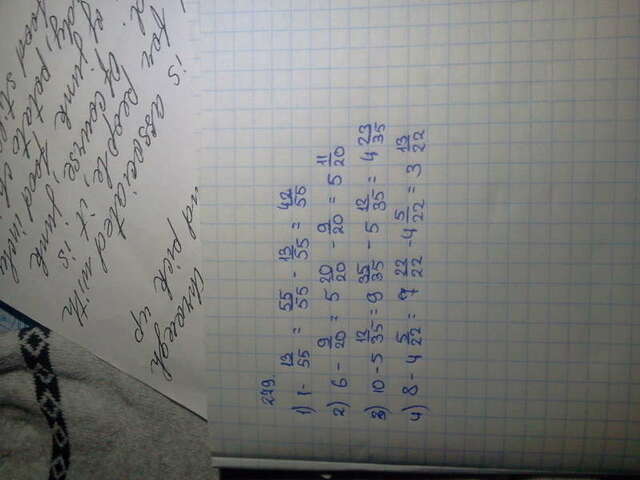 249.
1) 1 - 13/55 = 55/55 - 13/55 = 42/55
2) 6 - 9/20 = 5 20/20 - 9/20 = 5 11/20
3) 10 - 5 12/35 = 9 35/35 - 5 12/35 = 4 23/35
4) 8 - 4 5/22 = 7 22/22 - 4 5/22 = 3 17/22
through
nd pick up
is associated with
for people, it is
d. Of course, junk
of junk food inclu
dy, potato chi
food stil